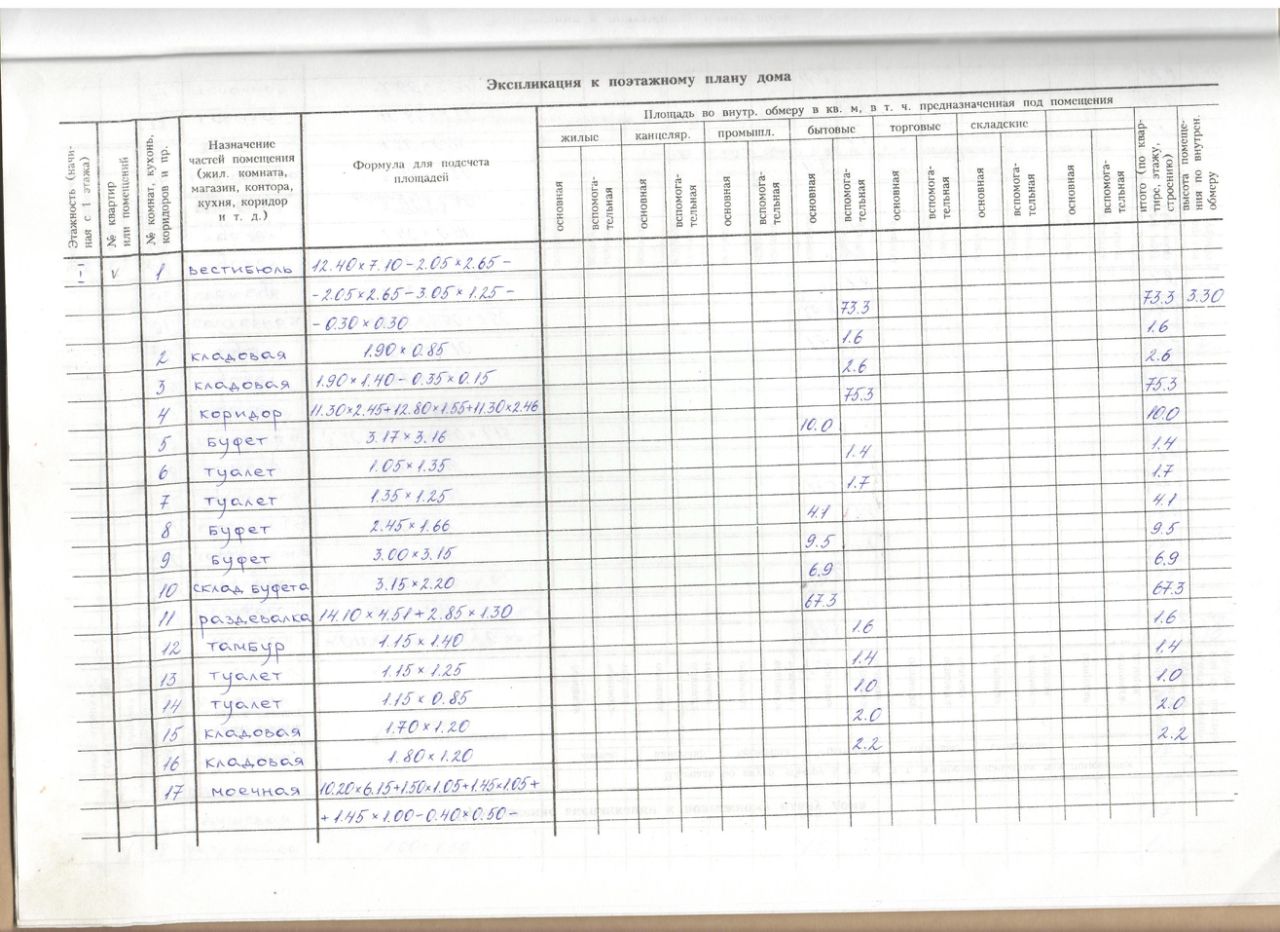 Экспликация к поэтажному плану дома
Этажность (начиная с 1 этажа)
№ квартир или помещений
№ комнат, кухонь, коридоров и пр.
Назначение частей помещения (жил. комната, магазин, контора, кухня, коридор и т. д.)
Формула для подсчета площадей
Площадь во внутр. обмеру в кв. м, в т. ч. предназначенная под помещения
жилые канцеляр. промышл. бытовые торговые складские
основная вспомогательная основная вспомогательная основная вспомогательная основная вспомогательная основная вспомогательная основная вспомогательная основная вспомогательная
итого (по квартире, этажу, строению)
высота помещения по внутрен. обмеру
I V 1 вестибюль 12.40×7.10-2.05×2.65-
-2.05×2.65-3.05×1.25-
-0.30×0.30 73.3 73.3 3.30
2 кладовая 1.90×0.85 1.6 1.6
3 кладовая 1.90×1.40-0.35×0.15 2.6 2.6
4 коридор 11.30×2.45+12.80×1.55+11.30×2.46 75.3 75.3
5 буфет 3.17×3.16 10.0 10.0
6 туалет 1.05×1.35 1.4 1.4
7 туалет 1.35×1.25 1.7 1.7
8 буфет 2.45×1.66 4.1 4.1
9 буфет 3.00×3.15 9.5 9.5
10 склад буфета 3.15×2.20 6.9 6.9
11 раздевалка 14.10×4.51+2.85×1.30 67.3 67.3
12 тамбур 1.15×1.40 1.6 1.6
13 туалет 1.15×1.25 1.4 1.4
14 туалет 1.15×0.85 1.0 1.0
15 кладовая 1.70×1.20 2.0 2.0
16 кладовая 1.80×1.20 2.2 2.2
17 моечная 10.20×6.15+1.50×1.05+1.45×1.05+
+1.45×1.00-0.40×0.50-